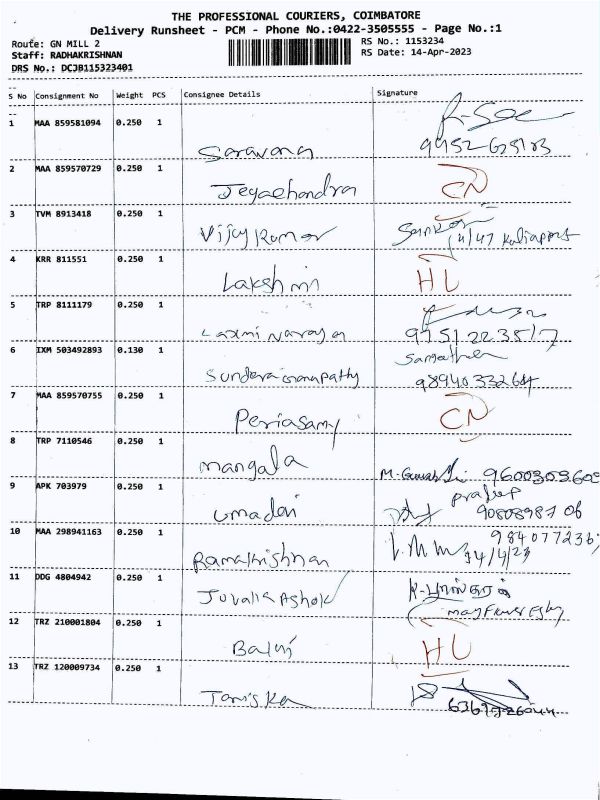 THE PROFESSIONAL COURIERS, COIMBATORE
Delivery Runsheet - PCM - Phone No.:0422-3505555 - Page No.:1
Route: GN MILL 2
Staff: RADHAKRISHNAN
DRS No.: DCJB115323401
RS No.: 1153234
RS Date: 14-Apr-2023
S No Consignment No Weight PCS Consignee Details Signature
1 MAA 859581094 0.250 1
Saravana
2 MAA 859570729 0.250 1
Jeyachandra CN
3 TVM 8913418 0.250 1
Vijay Kumar
4 KRR 811551 0.250 1
Lakshmi HL
5 TRP 8111179 0.250 1
Laxmi Narayan
6 IXM 503492893 0.130 1
Sundara
7 MAA 859570755 0.250 1
Periasamy CN
8 TRP 7110546 0.250 1
Mangala 9600309609
9 APK 703979 0.250 1
Umadevi
10 MAA 298941163 0.250 1
Ramakrishnan 14/4/23
11 DDG 4804942 0.250 1
Ashok
12 TRZ 210001804 0.250 1
HL
13 TRZ 120009734 0.250 1
Taniska